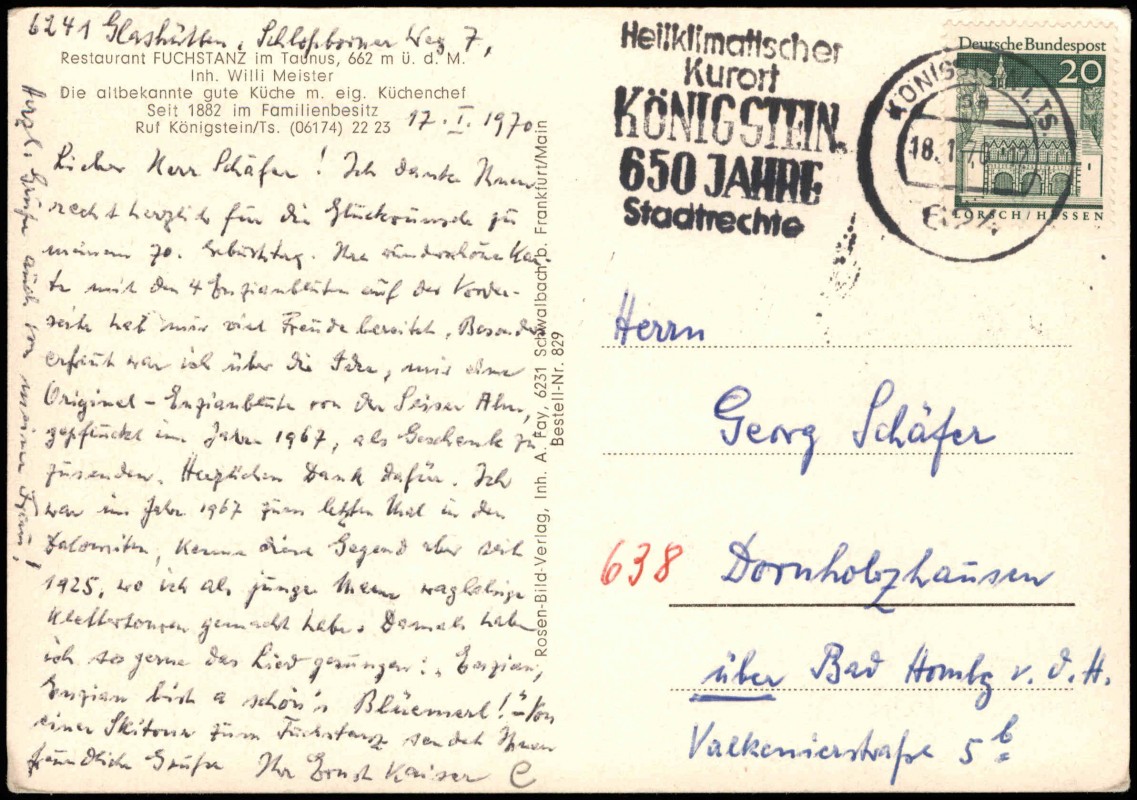 6241 Glashütten, Schloßborner Weg 7,
Restaurant FUCHSTANZ im Taunus, 662 m ü. d. M.
Inh. Willi Meister
Die altbekannte gute Küche m. eig. Küchenchef
Seit 1882 im Familienbesitz
Ruf Königstein/Ts. (06174) 22 23
17. I. 1970
Lieber Herr Schäfer! Ich danke Ihnen
recht herzlich für die Glückwünsche zu
meinem 70. Geburtstag. Ihre wunderschöne Kar-
te mit den 4 Enzianblüten auf der Vorder-
seite hat mir viel Freude bereitet. Besonders
erfreut war ich über die Idee, mir eine
Original-Enzianblüte von der Seiser Alm,
gepflückt im Jahre 1967, als Geschenk zu
zusenden. Herzlichen Dank dafür. Ich
war im Jahre 1967 zum letzten Mal in den
Dolomiten, kenne diese Gegend aber seit
1925, wo ich als junger Mann waghalsige
Klettertouren gemacht habe. Damals haben
wir so gerne das Lied gesungen: „Enzian,
Enzian bist a schön's Blüemerl!" Von
einer Skitour zum Fuchstanz sendet Ihnen
freundliche Grüße Ihr Ernst Kaiser
Herzl. Grüße auch von meiner Frau!
Rosen-Bild-Verlag, Inh. A. Fay, 6231 Schwalbach b. Frankfurt/Main
Bestell-Nr. 829
Heilklimatischer
Kurort
KÖNIGSTEIN
650 JAHRE
Stadtrechte
KÖNIGSTEIN, TS
18.1.70
Deutsche Bundespost
20
LORSCH/HESSEN
Herrn
Georg Schäfer
638 Dornholzhausen
über Bad Hombg v. d. H.
Valkenierstraße 5 b